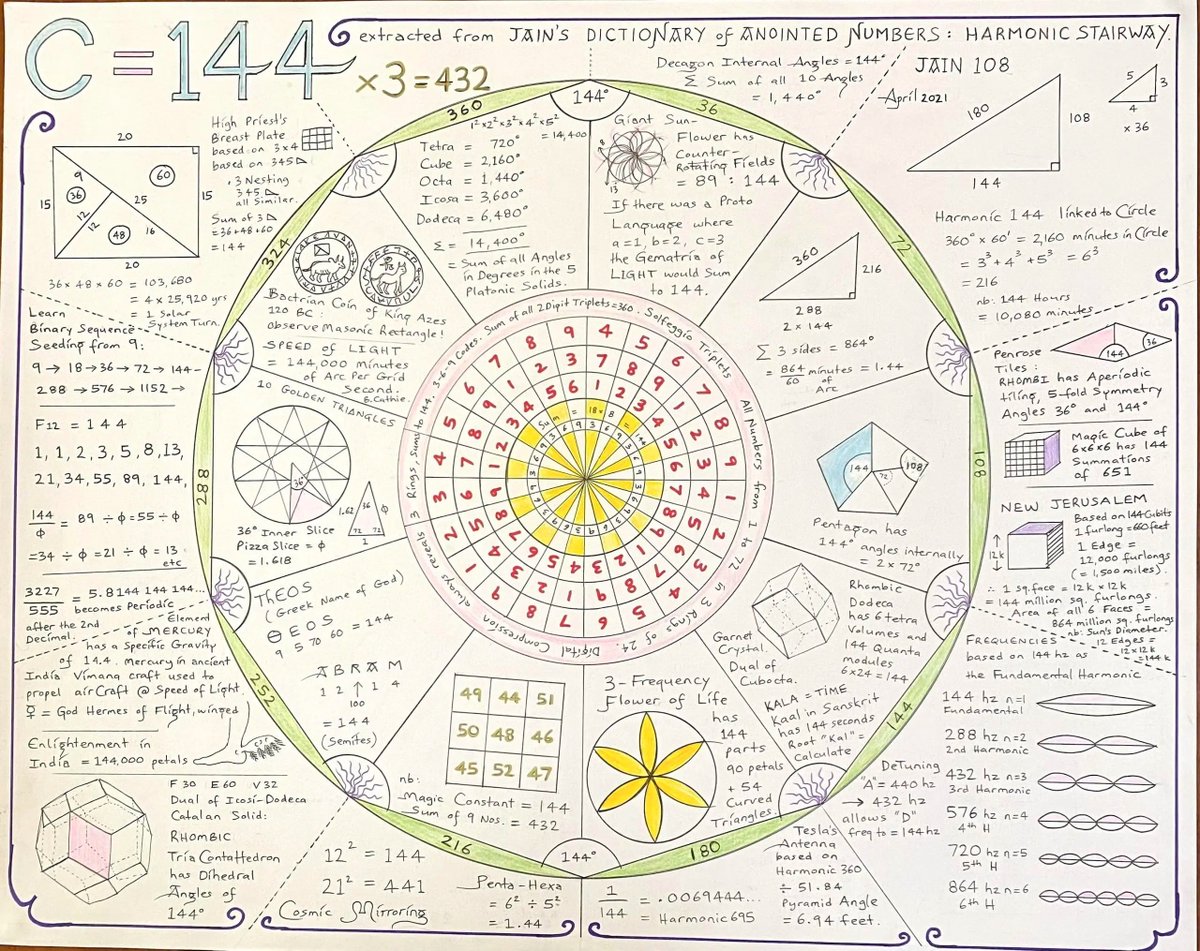 C = 144
× 3 = 432
extracted from JAIN'S DICTIONARY of ANOINTED NUMBERS : HARMONIC STAIRWAY.
JAIN 108
April 2021
20
15
9
36
60
12
25
48
16
15
20
High Priest's
Breast Plate
based on 3x4
based on 345
. 3 Nesting
345
all Similar.
Sum of 3
= 36+48+60
= 144
36 x 48 x 60 = 103,680
= 4 x 25,920 yrs
= 1 Solar
System Turn.
Learn
Binary Sequence
Seeding from 9:
9 → 18 → 36 → 72 → 144 -
288 → 576 → 1152 →
F12 = 144
1, 1, 2, 3, 5, 8, 13,
21, 34, 55, 89, 144,
144 = 89 ÷ Φ = 55 ÷ Φ
Φ
= 34 ÷ Φ = 21 ÷ Φ = 13
etc
3227 = 5.8144 144 144...
555 becomes Periodic
after the 2nd
Decimal.
Element
of MERCURY
has a Specific Gravity
of 14.4. mercury in ancient
India Vimana craft used to
propel air Craft @ Speed of Light.
☿ = God Hermes of Flight, winged
Enlightenment in
India = 144,000 petals
F 30 E 60 V 32
Dual of Icosi-Dodeca
Catalan Solid:
RHOMBIC
Tria Contahedron
has Dihedral
Angles of
144°
360
36
72
108
144
180
216
252
288
324
144°
144°
1²x2²x3²x4²x5²
= 14,400
Tetra = 720°
Cube = 2,160°
Octa = 1,440°
Icosa = 3,600°
Dodeca = 6,480°
Σ = 14,400°
= Sum of all Angles
in Degrees in the 5
Platonic Solids.
Decagon Internal Angles = 144°
Σ Sum of all 10 Angles
= 1,440°
Giant Sun-
Flower has
Counter-
Rotating Fields
= 89 : 144
8
13
If there was a Proto
Language where
a=1, b=2, c=3
the Gematria of
LIGHT would Sum
to 144.
180
108
144
5
3
4
x 36
Harmonic 144 linked to Circle
360° x 60' = 2,160 minutes in Circle
= 3³ + 4³ + 5³ = 6³
= 216
nb: 144 Hours
= 10,080 minutes
360
216
288
2 x 144
Σ 3 sides = 864°
= 864 minutes = 1.44
60 of
Arc
Bactrian Coin of King Azes
120 BC :
Observe Masonic Rectangle!
SPEED of LIGHT
= 144,000 minutes
of Arc Per Grid
Second.
B. Cathie.
10 GOLDEN TRIANGLES
36°
36
1.62
Φ
72
72
1
36° Inner Slice
Pizza Slice = Φ
= 1.618
3 Rings, Sums to 144. 3-6-9 Codes. Sum of all 2Digit Triplets = 360. Solfeggio Triplets
All Numbers from 1 to 72 in 3 Rings of 24. Digital Compression always reveals
Sum = 18 x 8 = 144
Penrose
Tiles :
144
36
RHOMBI has Aperiodic
tiling, 5-fold Symmetry
Angles 36° and 144°
Magic Cube of
6x6x6 has 144
Summations
of 651
NEW JERUSALEM
12k
Based on 144 Cubits
1 furlong = 660 feet
1 Edge =
12,000 furlongs
(= 1,500 miles).
∴ 1 sq. face = 12k x 12k
= 144 million sq. furlongs.
Area of all 6 Faces =
864 million sq. furlongs
nb: Sun's Diameter.
12 Edges =
12 x 12k
= 144k
FREQUENCIES
based on 144 hz as
the Fundamental Harmonic
144 hz n=1
Fundamental
288 hz n=2
2nd Harmonic
432 hz n=3
3rd Harmonic
576 hz n=4
4th H
720 hz n=5
5th H
864 hz n=6
6th H
144
72
108
Pentagon has
144° angles internally
= 2 x 72°
Rhombic
Dodeca
has 6 tetra
Volumes and
144 Quanta
modules
6x24 = 144
Garnet
Crystal.
Dual of
Cubocta.
KALA = TIME
Kaal in Sanskrit
has 144 seconds
Root "Kal" =
Calculate
DeTuning
"A" = 440 hz
→ 432 hz
allows "D"
freq to = 144 hz
Tesla's
Antenna
based on
Harmonic 360
÷ 51.84
Pyramid Angle
= 6.94 feet.
ThEOS
(Greek Name of God)
Θ E O S
9 5 70 60 = 144
A B R A M
1 2 ↑ 1 4
100
= 144
(Semites)
49 44 51
50 48 46
45 52 47
nb:
Magic Constant = 144
Sum of 9 Nos. = 432
3-Frequency
Flower of Life
has
144
parts
90 petals
+ 54
Curved
Triangles.
12² = 144
21² = 441
Cosmic Mirroring
Penta-Hexa
= 6² ÷ 5²
= 1.44
1 = .0069444...
144 = Harmonic 695